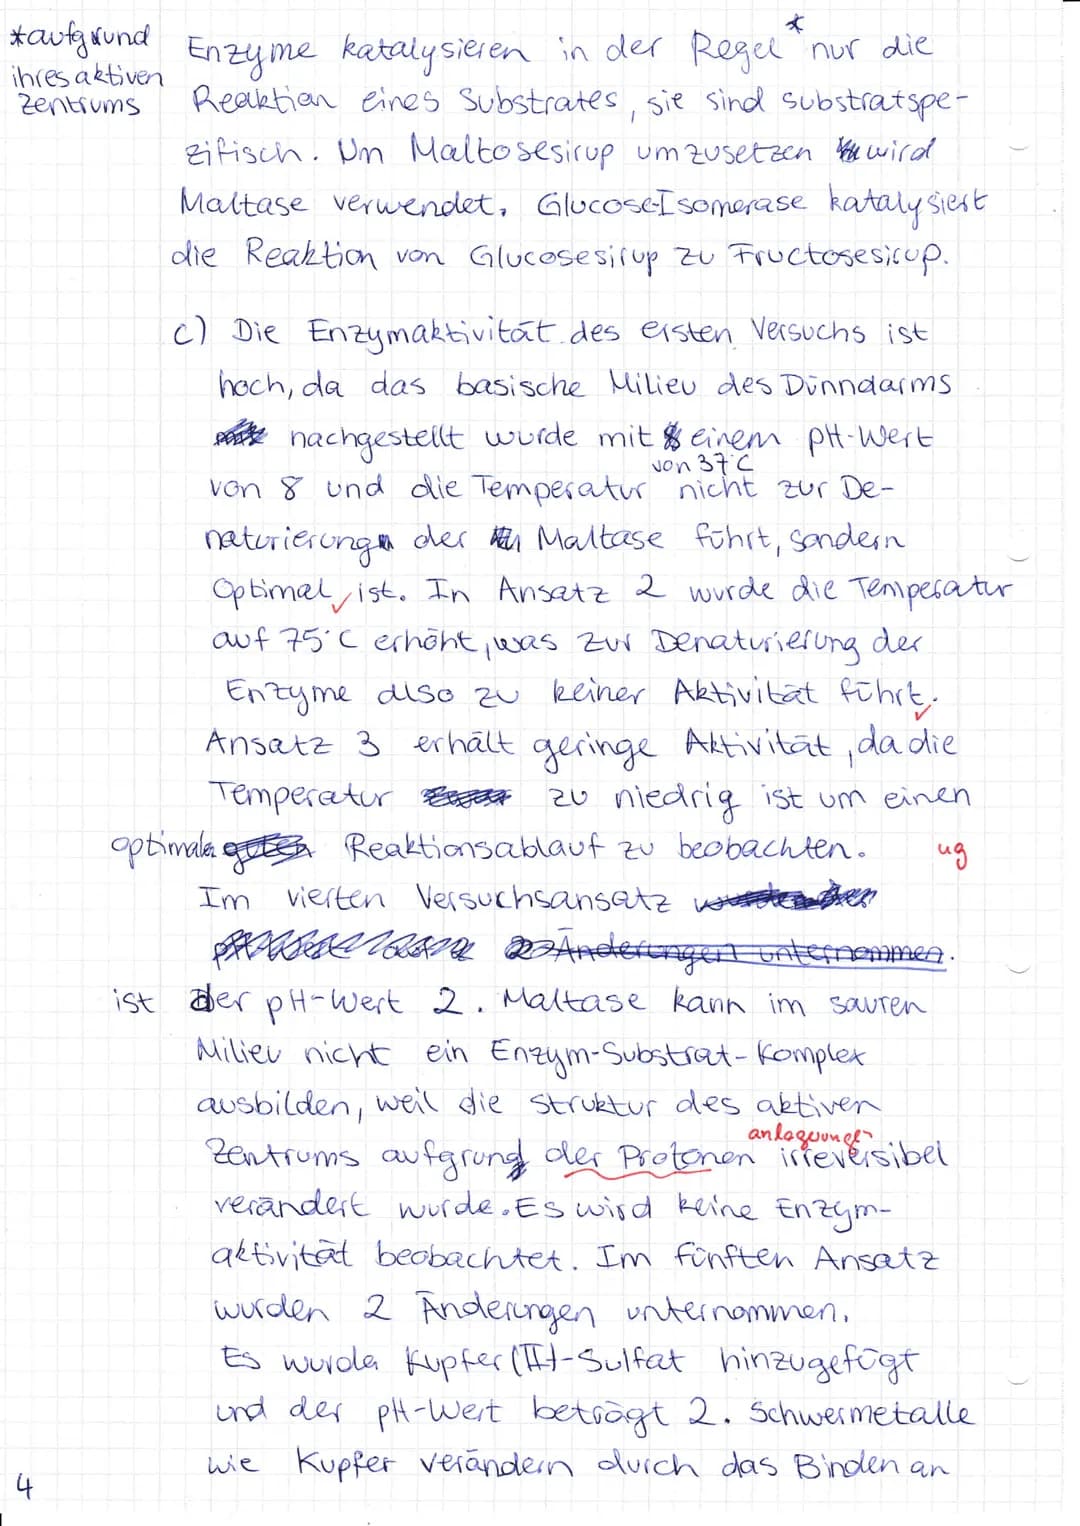 *aufgrund
ihres aktiven
Zentrums
Enzyme katalysieren in der Regel * nur die
Reaktion eines Substrates, sie sind substratspe-
zifisch. Um Maltosesirup umzusetzen wird
Maltase verwendet. Glucose-Isomerase katalysiert
die Reaktion von Glucosesirup zu Fructosesirup.
c) Die Enzymaktivität des ersten Versuchs ist
hoch, da das basische Milieu des Dünndarms
nachgestellt wurde mit einem pH-Wert
von 37°C
von 8 und die Temperatur nicht zur De-
naturierung der Maltase führt, sondern
Optimal ist. In Ansatz 2 wurde die Temperatur
auf 75°C erhöht, was zur Denaturierung der
Enzyme also zu keiner Aktivität führt.
Ansatz 3 erhält geringe Aktivität, da die
Temperatur zu niedrig ist um einen
optimalen Reaktionsablauf zu beobachten. ug
Im vierten Versuchsansatz
Änderungen unternommen.
ist der pH-Wert 2. Maltase kann im sauren
Milieu nicht ein Enzym-Substrat-Komplex
ausbilden, weil die Struktur des aktiven
anlagerungen
Zentrums aufgrund der Protonen irreversibel
verändert wurde. Es wird keine Enzym-
aktivität beobachtet. Im fünften Ansatz
wurden 2 Änderungen unternommen.
Es wurde Kupfer(II)-Sulfat hinzugefügt
und der pH-Wert beträgt 2. Schwermetalle
wie Kupfer verändern durch das Binden an
4